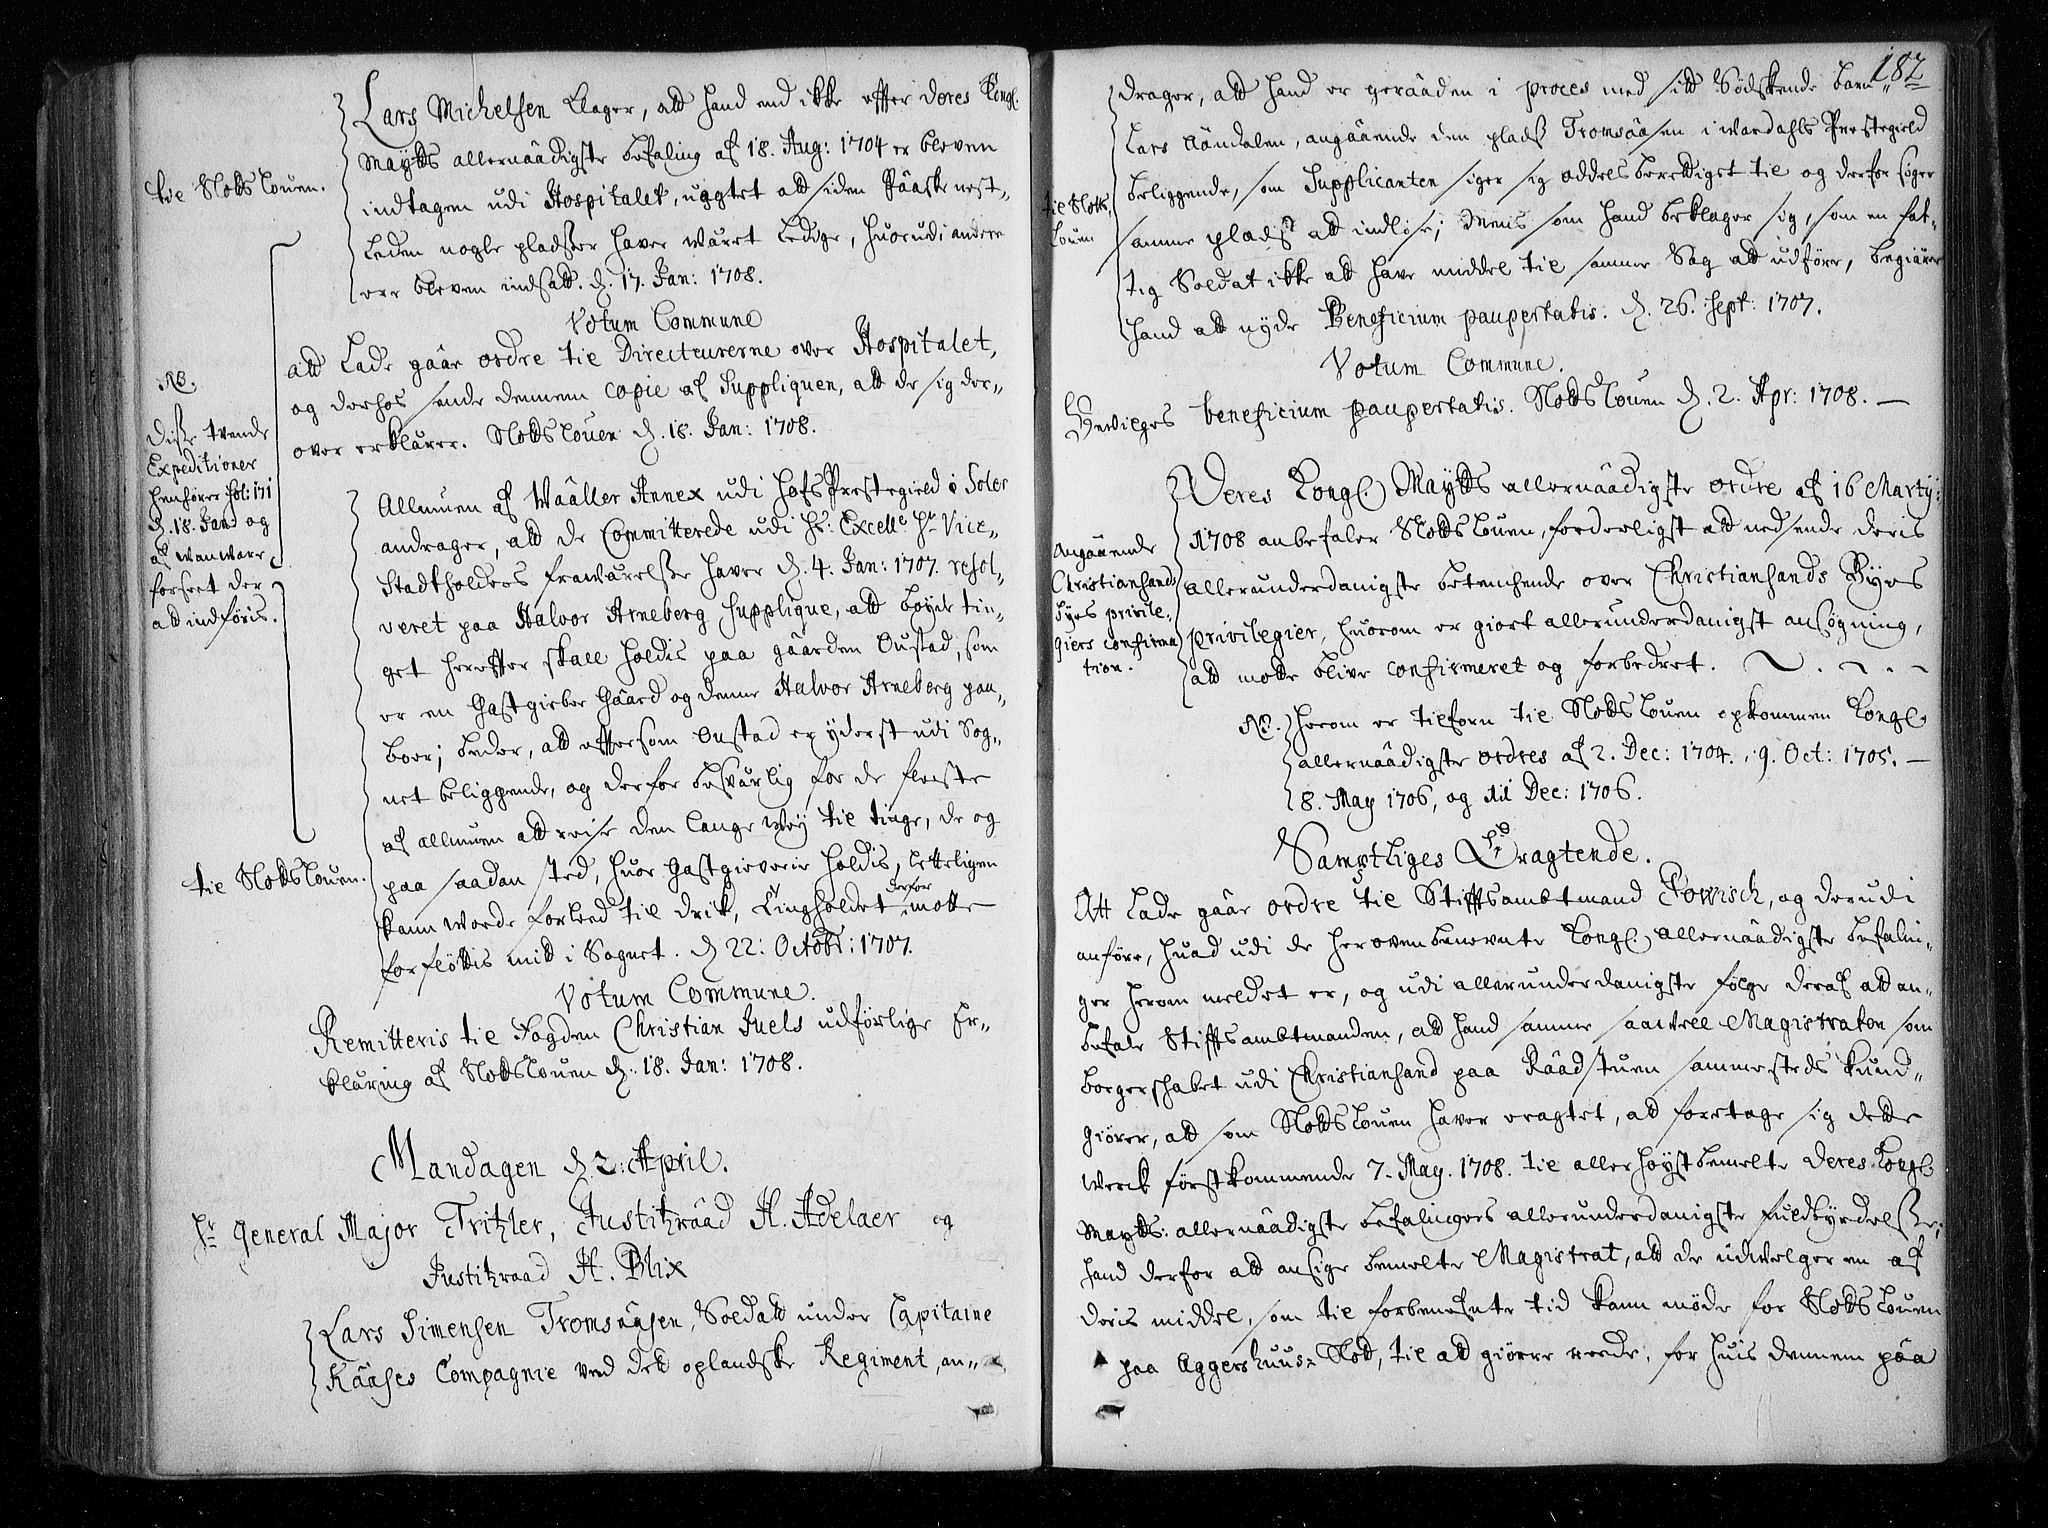 Lars Michelsen klager, att hand end ikke effter Deres Kongl:
Maytts allernaadigste befaling af 18. Aug: 1704 er bleven
til Slottslouen.
indtagen udi Hospitalet, uagtet att siden Paaske nest-
leden nogle pladsser haver warit ledige, huorudi andere
ere bleven indsatt. d. 17. Jan: 1708.
Votum Commune
att lade gaae ordre til Directeurerne over Hospitalet,
og derhos sende dennem copie af Suppliquen, att de sig der-
over erklærer. Slottslouen d. 18. Jan: 1708.
NB.
Disse tvende
Expeditioner
henhører fol: 171
d. 18. Jan: og
af wanware
forseet der
att indføris.
Allmuen af Waaller Annex udi Hofs Prestegield i Soler
andrager, att de Committerede udi Hs: Excellce Hr Vice-
Stadtholders frawærelsse haver d. 4. Jan: 1707. resol-
veret paa Halvor Arneberg Supplique, att bøyde tin-
get herefter skall holdis paa gaarden Oustad, som
er en Gastgieber Gaard og denne Halvor Arneberg paa-
boer; beder, att effersom Oustad er yderst udi Sog-
net beliggende, og derfor besværlig for de fleeste
af allmuen att reise den lange wey til tinge, de og
til Slottslouen.
paa saadan sted, huor Gastgieverie holdis, letteligen
kann worde forleed til drik, tingholdet derfor motte
forflottis mitt i Sognet. d 22: Octobr: 1707.
Votum Commune.
Remitteris til Fogden Christian Juels udførlige Er-
klæring af Slottslouen d. 18. Jan: 1708.
Mandagen d. 2: April.
Hr General Major Tritzler, Justitzraad H. Adelaer og
Justitzraad H. Blix
Lars Simensen Tromsaasen, Soldatt under Capitaine
Kaases Compagnie ved det oplandske Regiment, an-
182
drager, att hand er geraaden i proces med sitt Sødskende barn
Lars Aandalen, angaaende den plads Tromsaasen i Wardahls Prestegield
beliggende, som Supplicanten siger sig oddelsberettiget til og derfor søger
til Slotts-
louen
samme plads att indløse; Mens som hand beklager sig, som en fat-
tig Soldat ikke att have middel til samme Sag att udføre, begiærer
hand att nyde Beneficium paupertatis. d. 26. Sept: 1707.
Votum Commune.
Bevilges beneficium paupertatis. Slottslouen d. 2. Apr: 1708. —
Deres Kongl: Maytts allernaadigste ordre af 16 Marty:
1708 anbefaler Slottslouen, forderligst att nedsende deris
allerunderdanigste betenchende over Christiansands Byes
Angaaende
Christiansands
byes privile-
giers confirma
tion.
privilegier, huorom er giort allerunderdanigst ansøgning,
att motte blive confirmeret og forbedret.
NB. Herom er tilforn til Slottslouen opkommen Kongl:
allernaadigste ordres af 2. Dec: 1704. 9. Oct: 1705. —
8. May 1706, og dil Dec: 1706.
Samptliges Eragtende.
Att lade gaae ordre til Stifftsambtmand Powisch, og derudi
anføre, huad udi de herovenbenevnte Kongl: allernaadigste befalin-
ger herom meldet er, og udi allerunderdanigste følge deraf att an-
befale Stifftsambtmanden, att hand samme saavel Magistraten som
borgerschabet udi Christiansand paa Raadstuen sammesteds kund-
giører, att som Slottslouen haver eragtet, att foretage sig dette
Werck førstkommende 7. May. 1708. til allerhøystbemelte Deres Kongl:
Maytts: allernaadigste befalingers allerunderdanigste fuldbyrdelsse;
hand derfor att ansige bemelte Magistrat, att de udvelger en af
deris middel, som til forbenefnte tid kann møde for Slottslouen
paa Aggershuus-Slott, til att giøre reede, for huis dennem paa